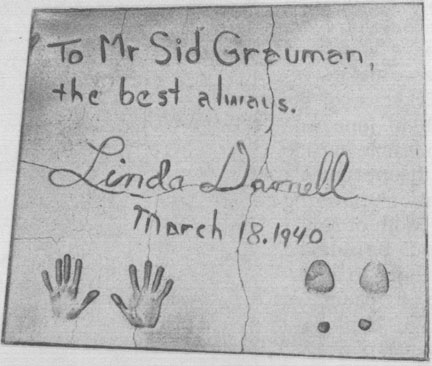 To Mr Sid Grauman,
the best always.
Linda Darnell
March 18.1940